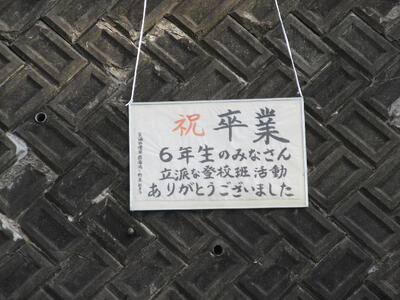 祝 卒業
6年生のみなさん
立派な登校班活動
ありがとうございました